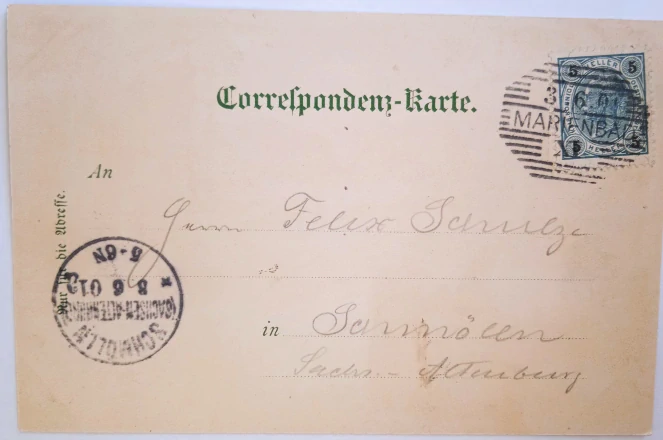 Correspondenz-Karte.
5 HELLER 5
3 6 01
MARIENBAD
HELLER
An
Herrn Felix Schulze
in Schmölln
Sachs.-Altenburg
Nur für die Adresse.
SCHMÖLLN
(SACHSEN-ALTENBURG)
* 3 6 01
5-6N